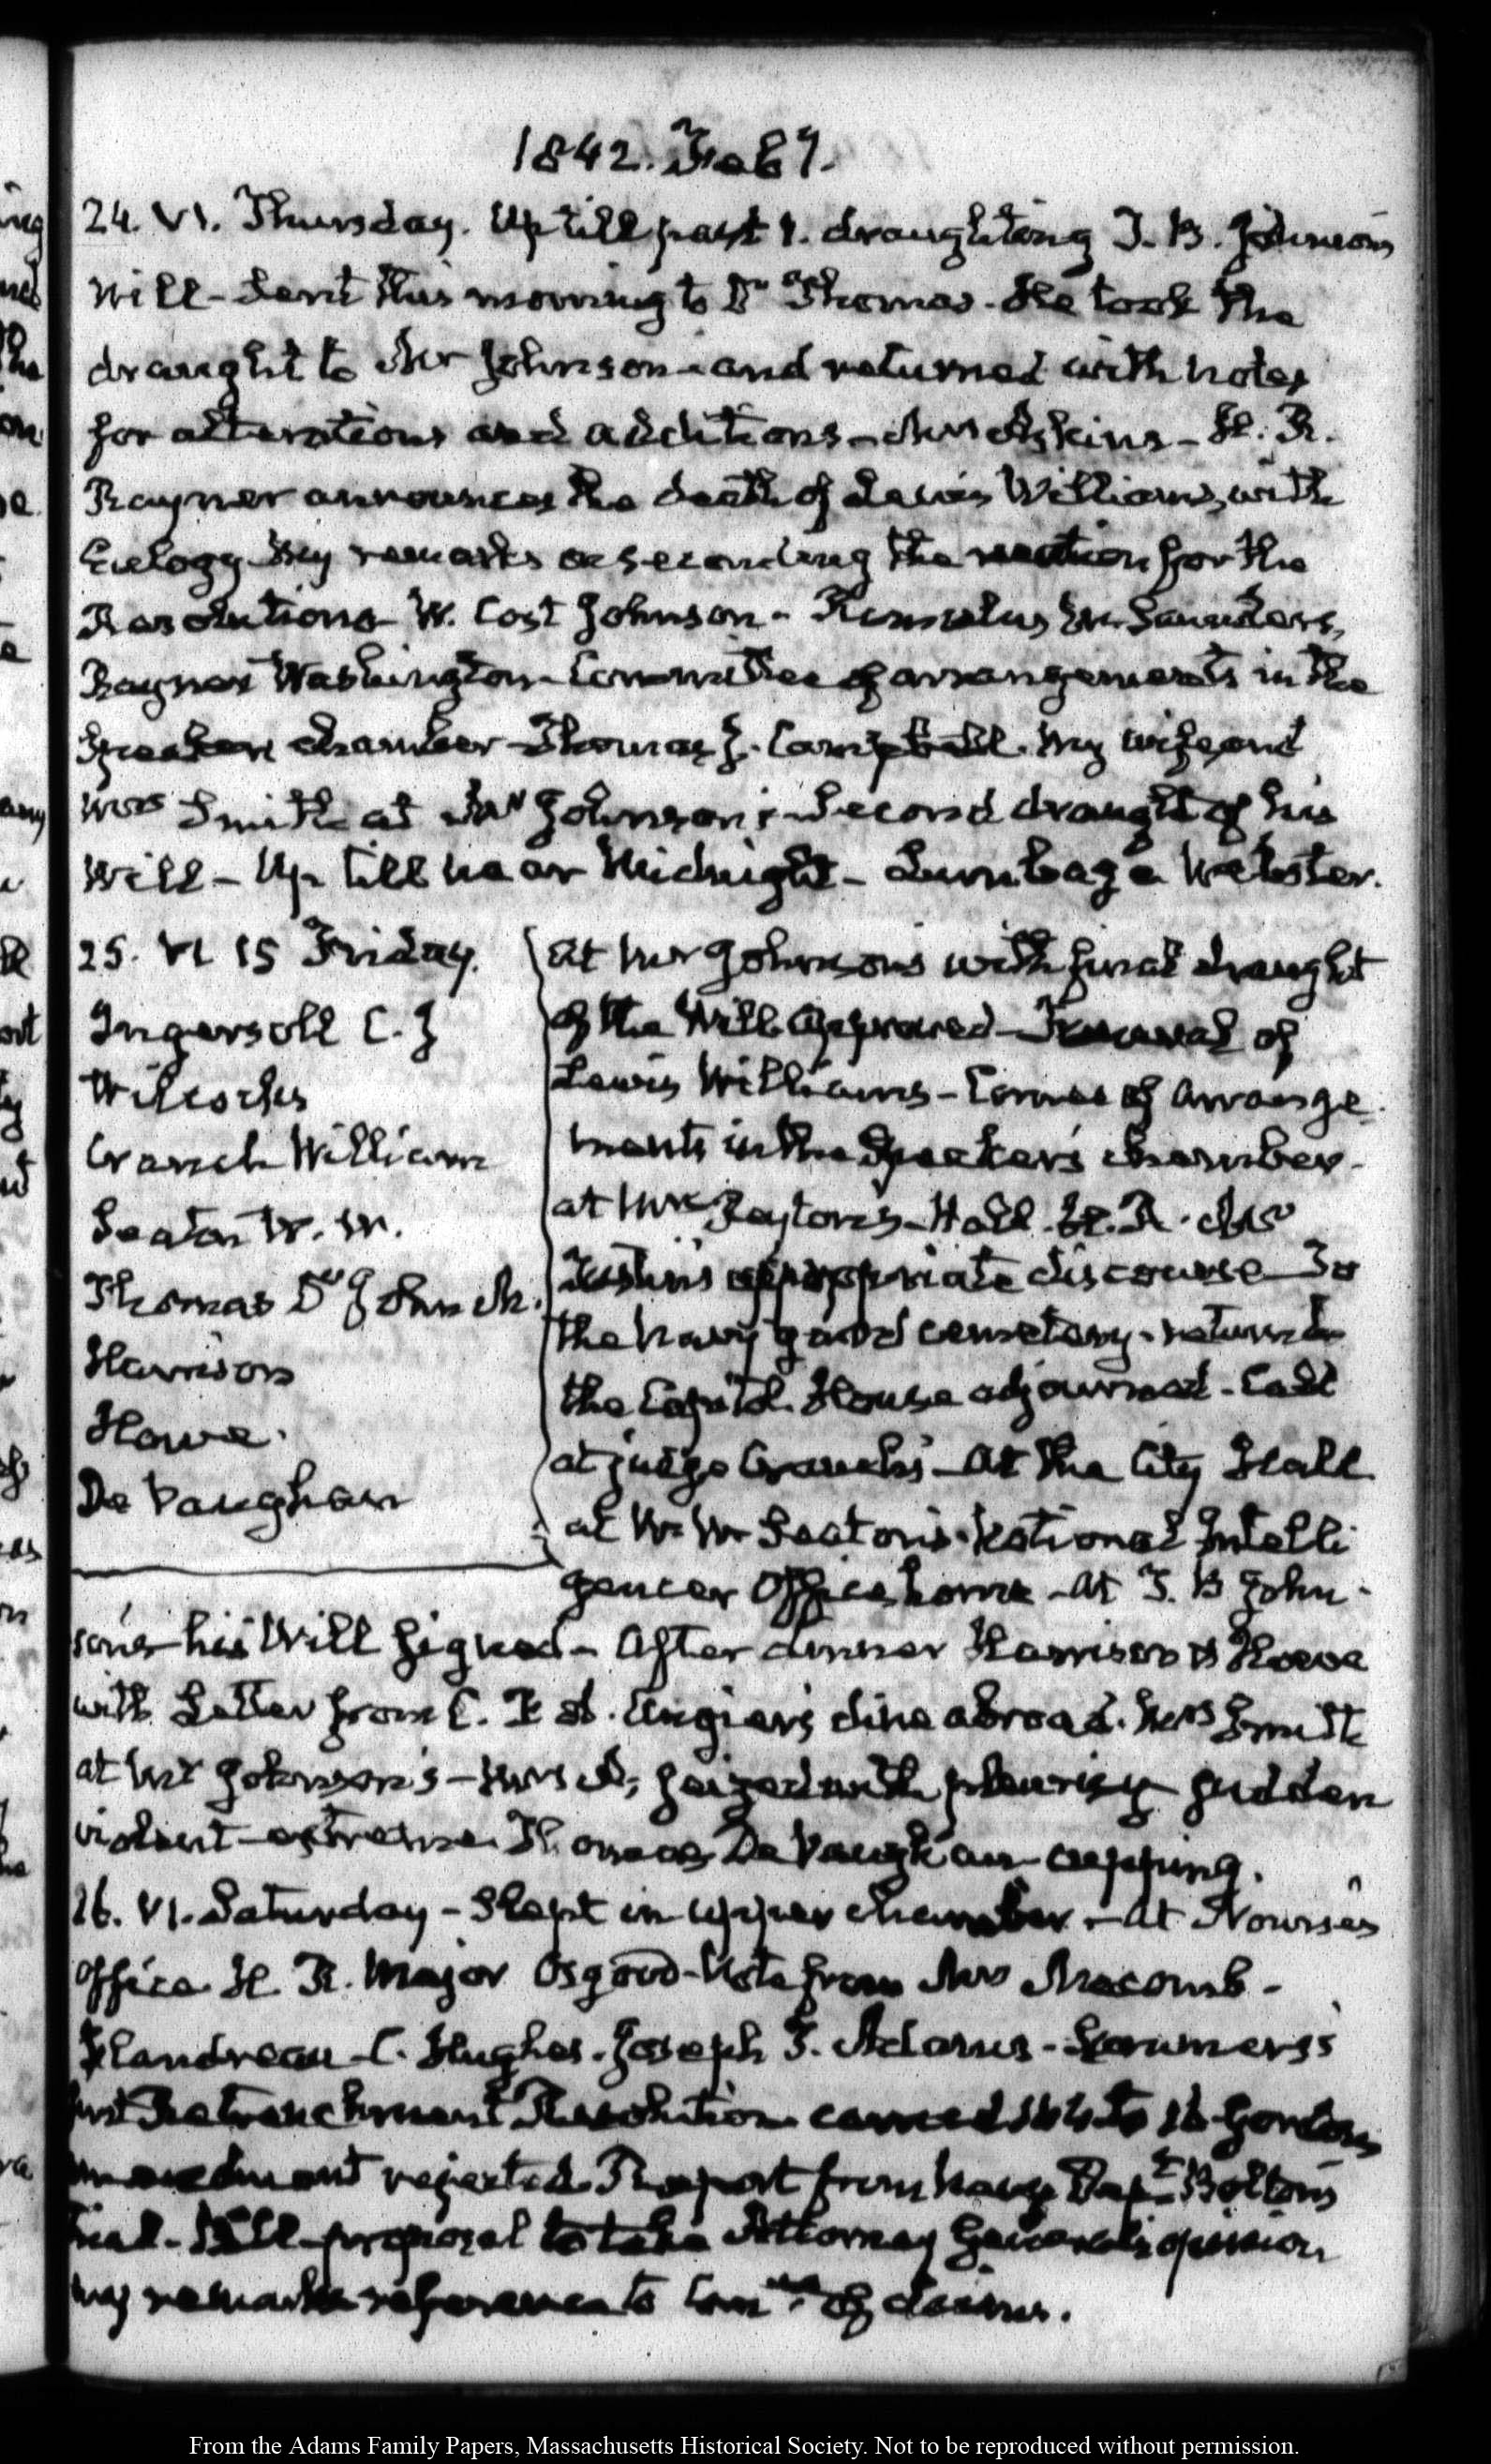 1842. Feby.
24. VI. Thursday. Up till past 1. draughting T. B. Johnson's
will - Sent this morning to Dr Thomas. He took the
draught to Mr Johnson and returned with notes
for alterations and additions - Mrs Adkins - H. R.
Rayner announces the death of Lewis Williams, with
Eulogy My remarks on seconding the motion for the
Resolutions W. Cost Johnson - Romulus M. Saunders,
Rayner Washington Committee of arrangements in the
Speakers chamber - Thomas J. Campbell. My wife and
Mrs Smith at Mr Johnson's - Second draught of his
will - Up till near Midnight - Lumbago Webster.
25. VI 15 Friday.
Ingersoll C. J
Wilcocks
Cranch William
Seaton W. W.
Thomas Dr John M.
Harrison
Howe.
De Vaughan
At Mr Johnson's with final draught
of the Will approved - Funeral of
Lewis Williams - Commee of Arrange-
ments in the Speaker's chamber -
at Mrs - Hall H. R. Mr
appropriate discourse - To
the Navy yard cemetery - return to
the Capitol. House adjourned - Call
at judge Cranch's - At the City Hall
at W. W. Seaton's National Intelli
gencer Office home - At T. B John-
son's his Will signed - After dinner Harrison & Howe
with Letter from C. F. A. Angier's dine abroad. Mrs Smith
at Mr Johnson's - Mrs A. seized with pleurisy sudden
violent extreme Thomas De Vaughan cupping.
26. VI. Saturday - Slept in upper chamber - At Nourse's
Office H. R. Major Osgood - Note from Mrs Macomb -
Flandreau - C. Hughes. Joseph T. Adams - Summers's
first Retrenchment Resolution carried to 16 Gordon's
amendment rejected. Report from Navy Dept Bolton's
trial - Bill proposal to take Attorney General's opinion
my remarks reference to Comee of claims.
From the Adams Family Papers, Massachusetts Historical Society. Not to be reproduced without permission.